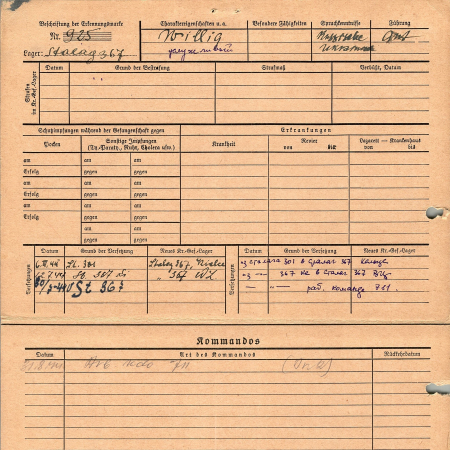 Beschriftung der Erkennungsmarke
Charaktereigenschaften u.a.
Besondere Fähigkeiten
Sprachkenntnisse
Führung
Nr. 925
Willig
gut
Lager: Stalag 367
Strafen im Kr.-Gef.-Lager
Datum
Grund der Bestrafung
Strafmaß
Verbüßt, Datum
Schutzimpfungen während der Gefangenschaft gegen
Erkrankungen
Pocken
Sonstige Impfungen
(Ty. Paraty., Ruhr, Cholera usw.)
Krankheit
Revier
von bis
Lazarett — Krankenhaus
von bis
am am am
Erfolg gegen gegen
am am am
Erfolg gegen gegen
am am am
Erfolg gegen gegen
am am
gegen gegen
Versetzungen
Datum
Grund der Versetzung
Neues Kr.-Gef.-Lager
Versetzungen
Datum
Grund der Versetzung
Neues Kr.-Gef.-Lager
St. 301
Stalag 367,
St. 367
" 367
St 367
из сталага 301 в сталаг 367
367 в сталаг 367
раб. команда 711
Kommandos
Datum
Art des Kommandos
Rückkehrdatum
Kdo 711